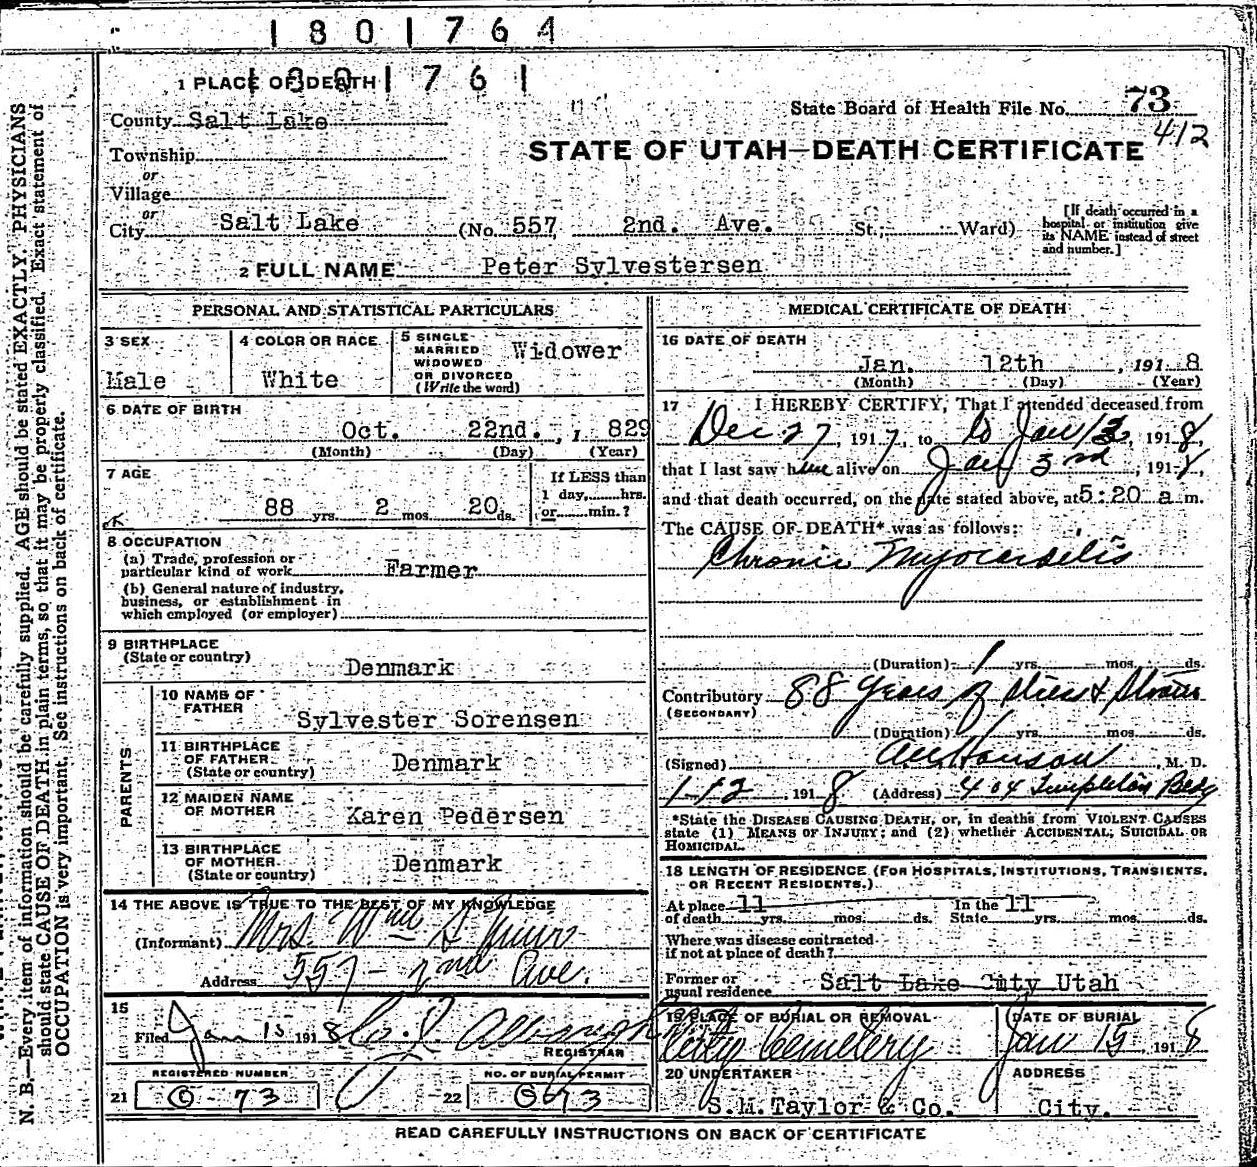 1801764
1801761
1 PLACE OF DEATH
State Board of Health File No. 73
412
County Salt Lake
STATE OF UTAH—DEATH CERTIFICATE
Township
or
Village
or
City Salt Lake (No. 557 2nd. Ave. St.; Ward)
[If death occurred in a
hospital or institution give
its NAME instead of street
and number.]
2 FULL NAME Peter Sylvestersen
PERSONAL AND STATISTICAL PARTICULARS
3 SEX
Male
4 COLOR OR RACE
White
5 SINGLE
MARRIED
WIDOWED
OR DIVORCED
(Write the word)
Widower
6 DATE OF BIRTH
Oct. 22nd. , 1 829
(Month) (Day) (Year)
7 AGE
88 yrs. 2 mos. 20 ds.
If LESS than
1 day, hrs.
or min.?
8 OCCUPATION
(a) Trade, profession or
particular kind of work Farmer
(b) General nature of industry,
business, or establishment in
which employed (or employer)
9 BIRTHPLACE
(State or country)
Denmark
PARENTS
10 NAME OF
FATHER
Sylvester Sorensen
11 BIRTHPLACE
OF FATHER
(State or country)
Denmark
12 MAIDEN NAME
OF MOTHER
Karen Pedersen
13 BIRTHPLACE
OF MOTHER
(State or country)
Denmark
14 THE ABOVE IS TRUE TO THE BEST OF MY KNOWLEDGE
(Informant) Mrs. Wm S
Address 557 - 2nd Ave.
15
Filed Jan 15 1918
REGISTRAR
REGISTERED NUMBER
21 73
NO. OF BURIAL PERMIT
22
MEDICAL CERTIFICATE OF DEATH
16 DATE OF DEATH
Jan. 12th , 191 8
(Month) (Day) (Year)
17 I HEREBY CERTIFY, That I attended deceased from
Dec 27, 1917, to to Jan , 1918,
that I last saw him alive on Jan 3rd, 1918,
and that death occurred, on the date stated above, at 5:20 a m.
The CAUSE OF DEATH* was as follows:
Chronic Myocarditis
(Duration) 1 yrs. mos. ds.
Contributory 88 years of stress &
(SECONDARY)
(Duration) yrs. mos. ds.
(Signed) Hanson, M. D.
1-12 1918 (Address) 404 Templeton Bldg
*State the DISEASE CAUSING DEATH, or, in deaths from VIOLENT CAUSES
state (1) MEANS OF INJURY; and (2) whether ACCIDENTAL, SUICIDAL OR
HOMICIDAL.
18 LENGTH OF RESIDENCE (FOR HOSPITALS, INSTITUTIONS, TRANSIENTS,
OR RECENT RESIDENTS.)
At place 11 In the 11
of death yrs. mos. ds. State yrs. mos. ds.
Where was disease contracted
if not at place of death?
Former or
usual residence Salt Lake City Utah
19 PLACE OF BURIAL OR REMOVAL
City Cemetery
DATE OF BURIAL
Jan 15 1918
20 UNDERTAKER
S.M. Taylor & Co.
ADDRESS
City.
READ CAREFULLY INSTRUCTIONS ON BACK OF CERTIFICATE
N. B.—Every item of information should be carefully supplied. AGE should be stated EXACTLY. PHYSICIANS
should state CAUSE OF DEATH in plain terms, so that it may be properly classified. Exact statement of
OCCUPATION is very important. See instructions on back of certificate.